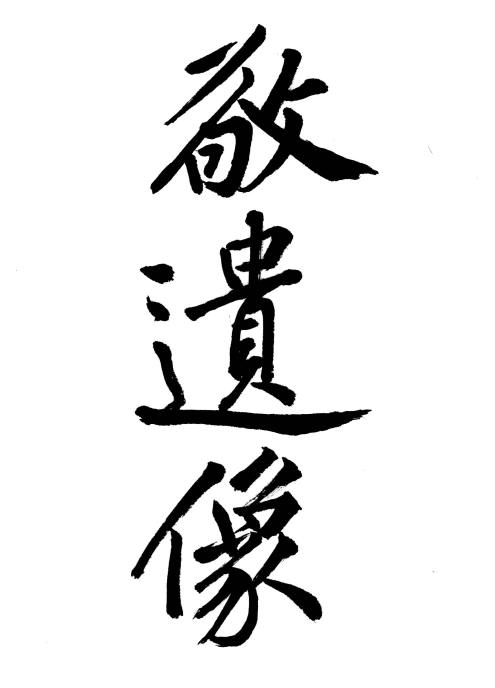 敬遺像